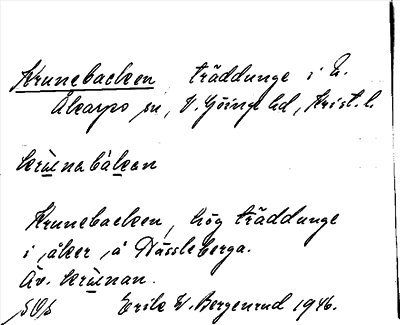 Krunebacken, träddunge i N.
Åkarps sn, V. Göinge hd, Krist. l.
krùnabàkan
Krunebacken, hög träddunge
i åker å Nässleberga.
Äv. krùnan.
Erik W. Bergenrud 1946.